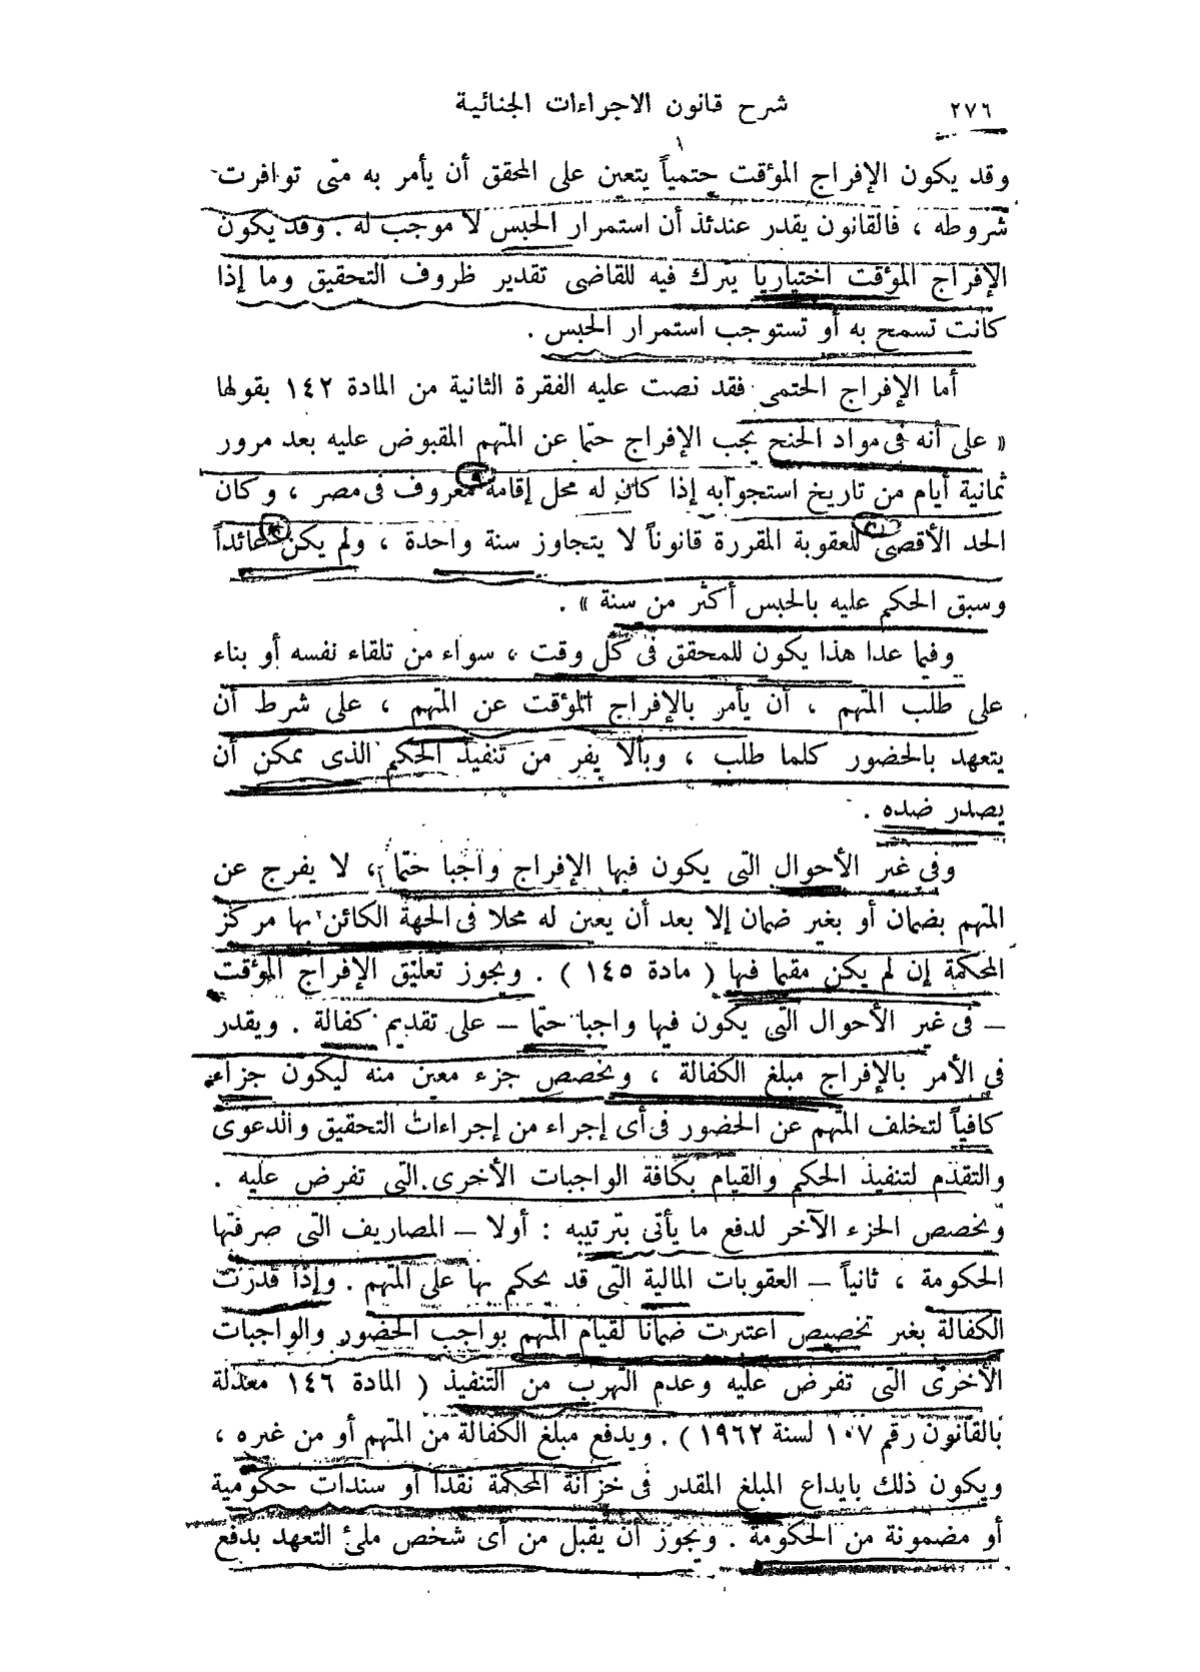 ٢٧٦ شرح قانون الاجراءات الجنائية
وقد يكون الإفراج المؤقت حتمياً يتعين على المحقق أن يأمر به متى توافرت
شروطه ، فالقانون يقدر عندئذ أن استمرار الحبس لا موجب له . وقد يكون
الإفراج المؤقت اختياريا يترك فيه للقاضى تقدير ظروف التحقيق وما إذا
كانت تسمح به أو تستوجب استمرار الحبس .
أما الإفراج الحتمى فقد نصت عليه الفقرة الثانية من المادة ١٤٢ بقولها
« على أنه فى مواد الجنح يجب الإفراج حتما عن المتهم المقبوض عليه بعد مرور
ثمانية أيام من تاريخ استجوابه إذا كان له محل إقامة معروف فى مصر ، وكان
الحد الأقصى للعقوبة المقررة قانوناً لا يتجاوز سنة واحدة ، ولم يكن عائداً
وسبق الحكم عليه بالحبس أكثر من سنة » .
وفيما عدا هذا يكون للمحقق فى كل وقت ، سواء من تلقاء نفسه أو بناء
على طلب المتهم ، أن يأمر بالإفراج المؤقت عن المتهم ، على شرط أن
يتعهد بالحضور كلما طلب ، وبألا يفر من تنفيذ الحكم الذى يمكن أن
يصدر ضده .
وفى غير الأحوال التى يكون فيها الإفراج واجبا حتما ، لا يفرج عن
المتهم بضمان أو بغير ضمان إلا بعد أن يعين له محلا فى الجهة الكائن بها مركز
المحكمة إن لم يكن مقيما فيها ( مادة ١٤٥ ) . ويجوز تعليق الإفراج المؤقت
– فى غير الأحوال التى يكون فيها واجبا حتما – على تقديم كفالة . ويقدر
فى الأمر بالإفراج مبلغ الكفالة ، ويخصص جزء معين منه ليكون جزاء
كافياً لتخلف المتهم عن الحضور فى أى إجراء من إجراءات التحقيق والدعوى
والتقدم لتنفيذ الحكم والقيام بكافة الواجبات الأخرى التى تفرض عليه .
ويخصص الجزء الآخر لدفع ما يأتى بترتيبه : أولا – المصاريف التى صرفتها
الحكومة ، ثانياً – العقوبات المالية التى قد يحكم بها على المتهم . وإذا قدرت
الكفالة بغير تخصيص اعتبرت ضمانا لقيام المتهم بواجب الحضور والواجبات
الأخرى التى تفرض عليه وعدم التهرب من التنفيذ ( المادة ١٤٦ معدلة
بالقانون رقم ١٠٧ لسنة ١٩٦٢ ) . ويدفع مبلغ الكفالة من المتهم أو من غيره ،
ويكون ذلك بايداع المبلغ المقدر فى خزانة المحكمة نقدا أو سندات حكومية
أو مضمونة من الحكومة . ويجوز أن يقبل من أى شخص ملئ التعهد بدفع